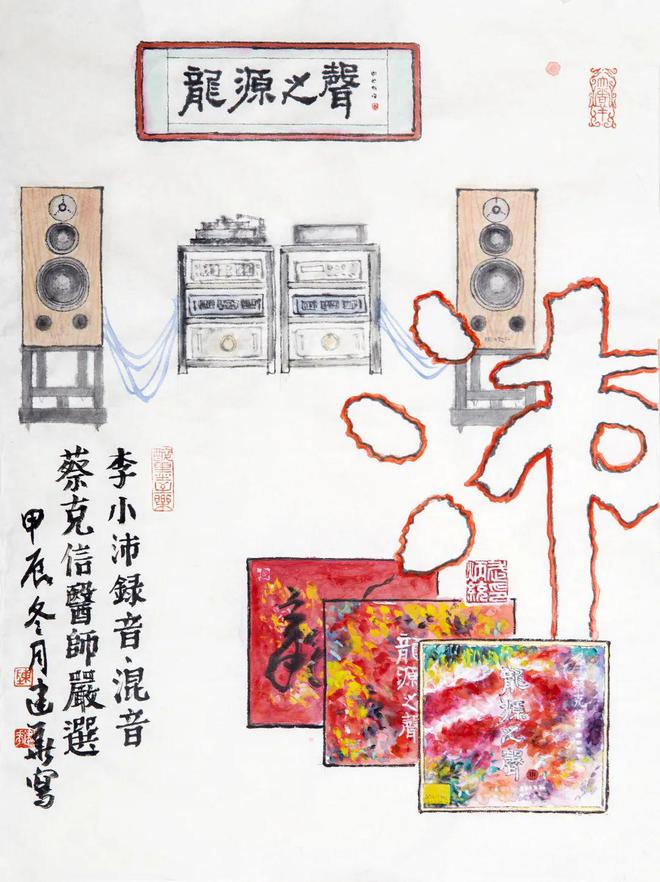 龍源之聲
李小沛録音、混音
蔡克信醫師嚴選
甲辰冬月建華寫
龍源之聲
龍源之聲